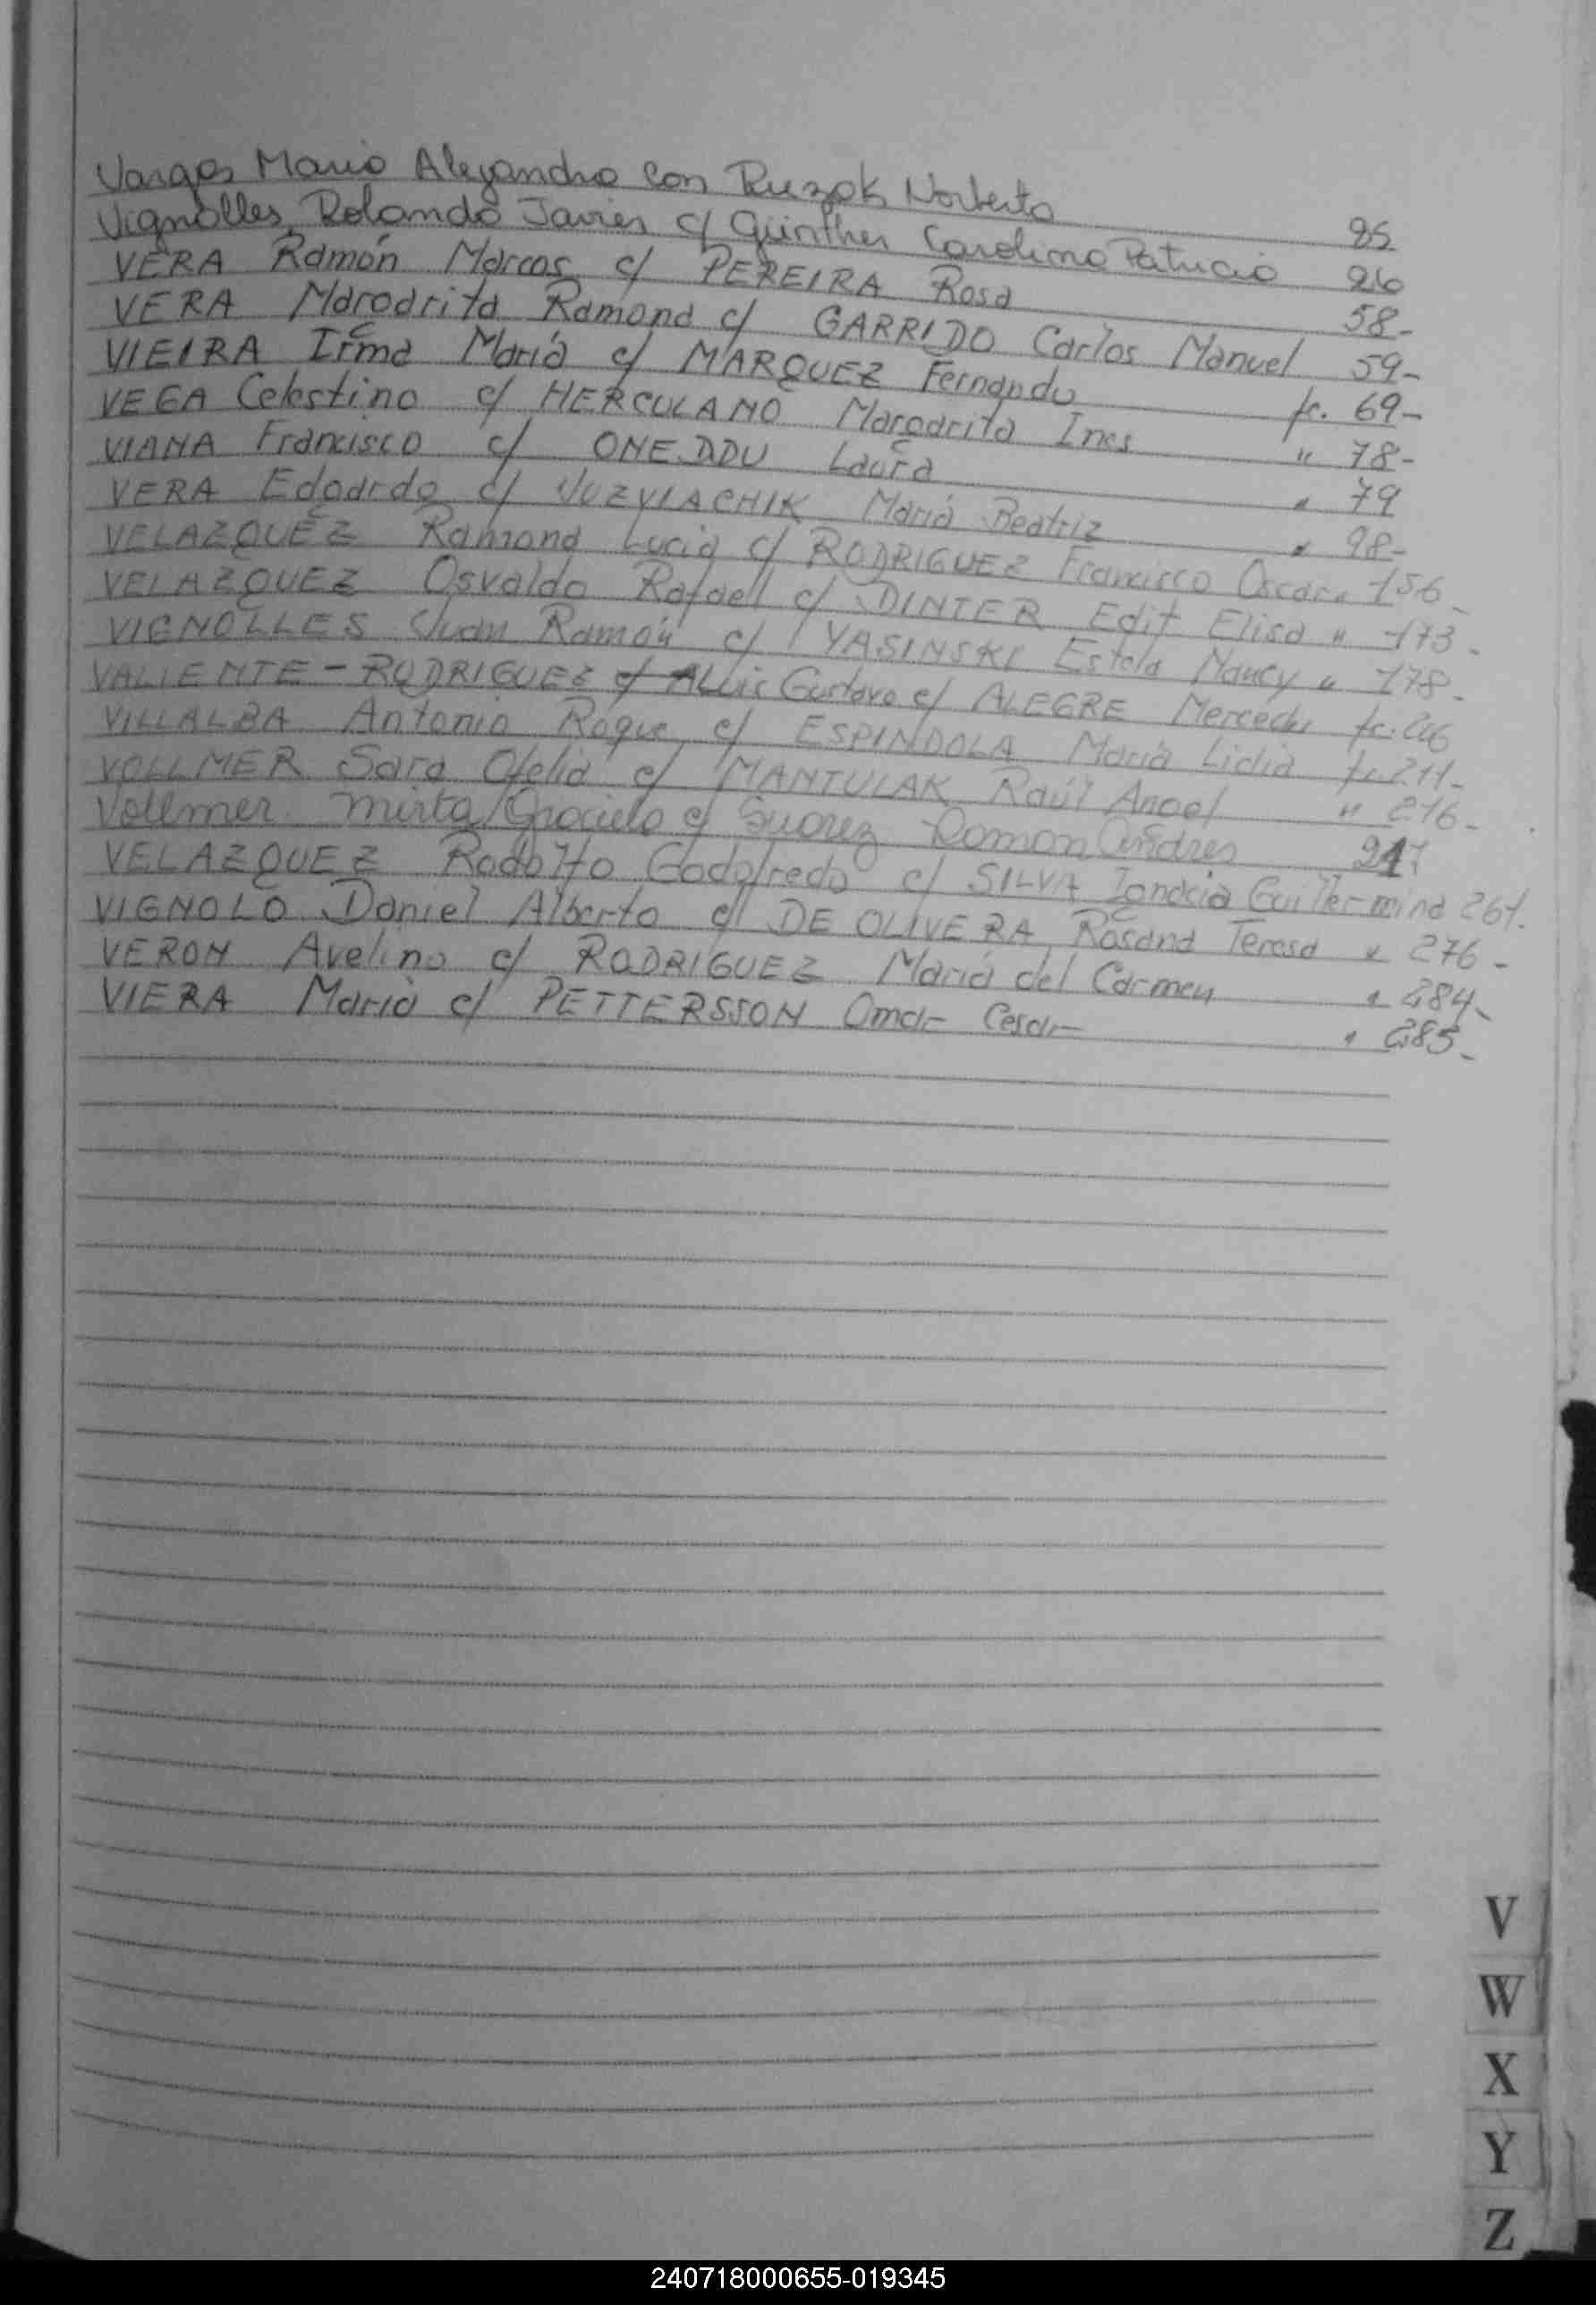 Vargas Mario Alejandro con Ruzak Norberto 25
Vignolles, Rolando Javier c/ Günther Carolina Patricia 26
VERA Ramón Marcos c/ PEREIRA Rosa 58-
VERA Margarita Ramona c/ GARRIDO Carlos Manuel 59-
VIEIRA Irma María c/ MARQUEZ Fernando fc. 69-
VEGA Celestino c/ HERCULANO Margarita Ines " 78-
VIANA Francisco c/ ONEDDU Laura " 79
VERA Edgardo c/ María Beatriz " 98-
VELAZQUEZ Ramona Lucia c/ RODRIGUEZ Francisco Oscar " 156-
VELAZQUEZ Osvaldo Rafael c/ DINTER Edit Elisa " 173-
VIGNOLLES Juan Ramón c/ YASINSKI Estela Nancy " 178-
VALIENTE-RODRIGUEZ Luis Gustavo c/ ALEGRE Mercedes fc.
VILLALBA Antonio Roque c/ ESPINDOLA María Lidia fc. 211-
VOLLMER Sara Ofelia c/ MANTULAK Raúl Angel " 216-
Vollmer Mirta Graciela c/ Suarez Ramon Andres 217
VELAZQUEZ Rodolfo Godofredo c/ SILVA Ignacia Guillermina 261.
VIGNOLO Daniel Alberto c/ DE OLIVERA Rosana Teresa " 276-
VERON Avelino c/ RODRIGUEZ María del Carmen " 284-
VIERA María c/ PETTERSSON Omar Cesar " 285-
V
W
X
Y
Z
240718000655-019345